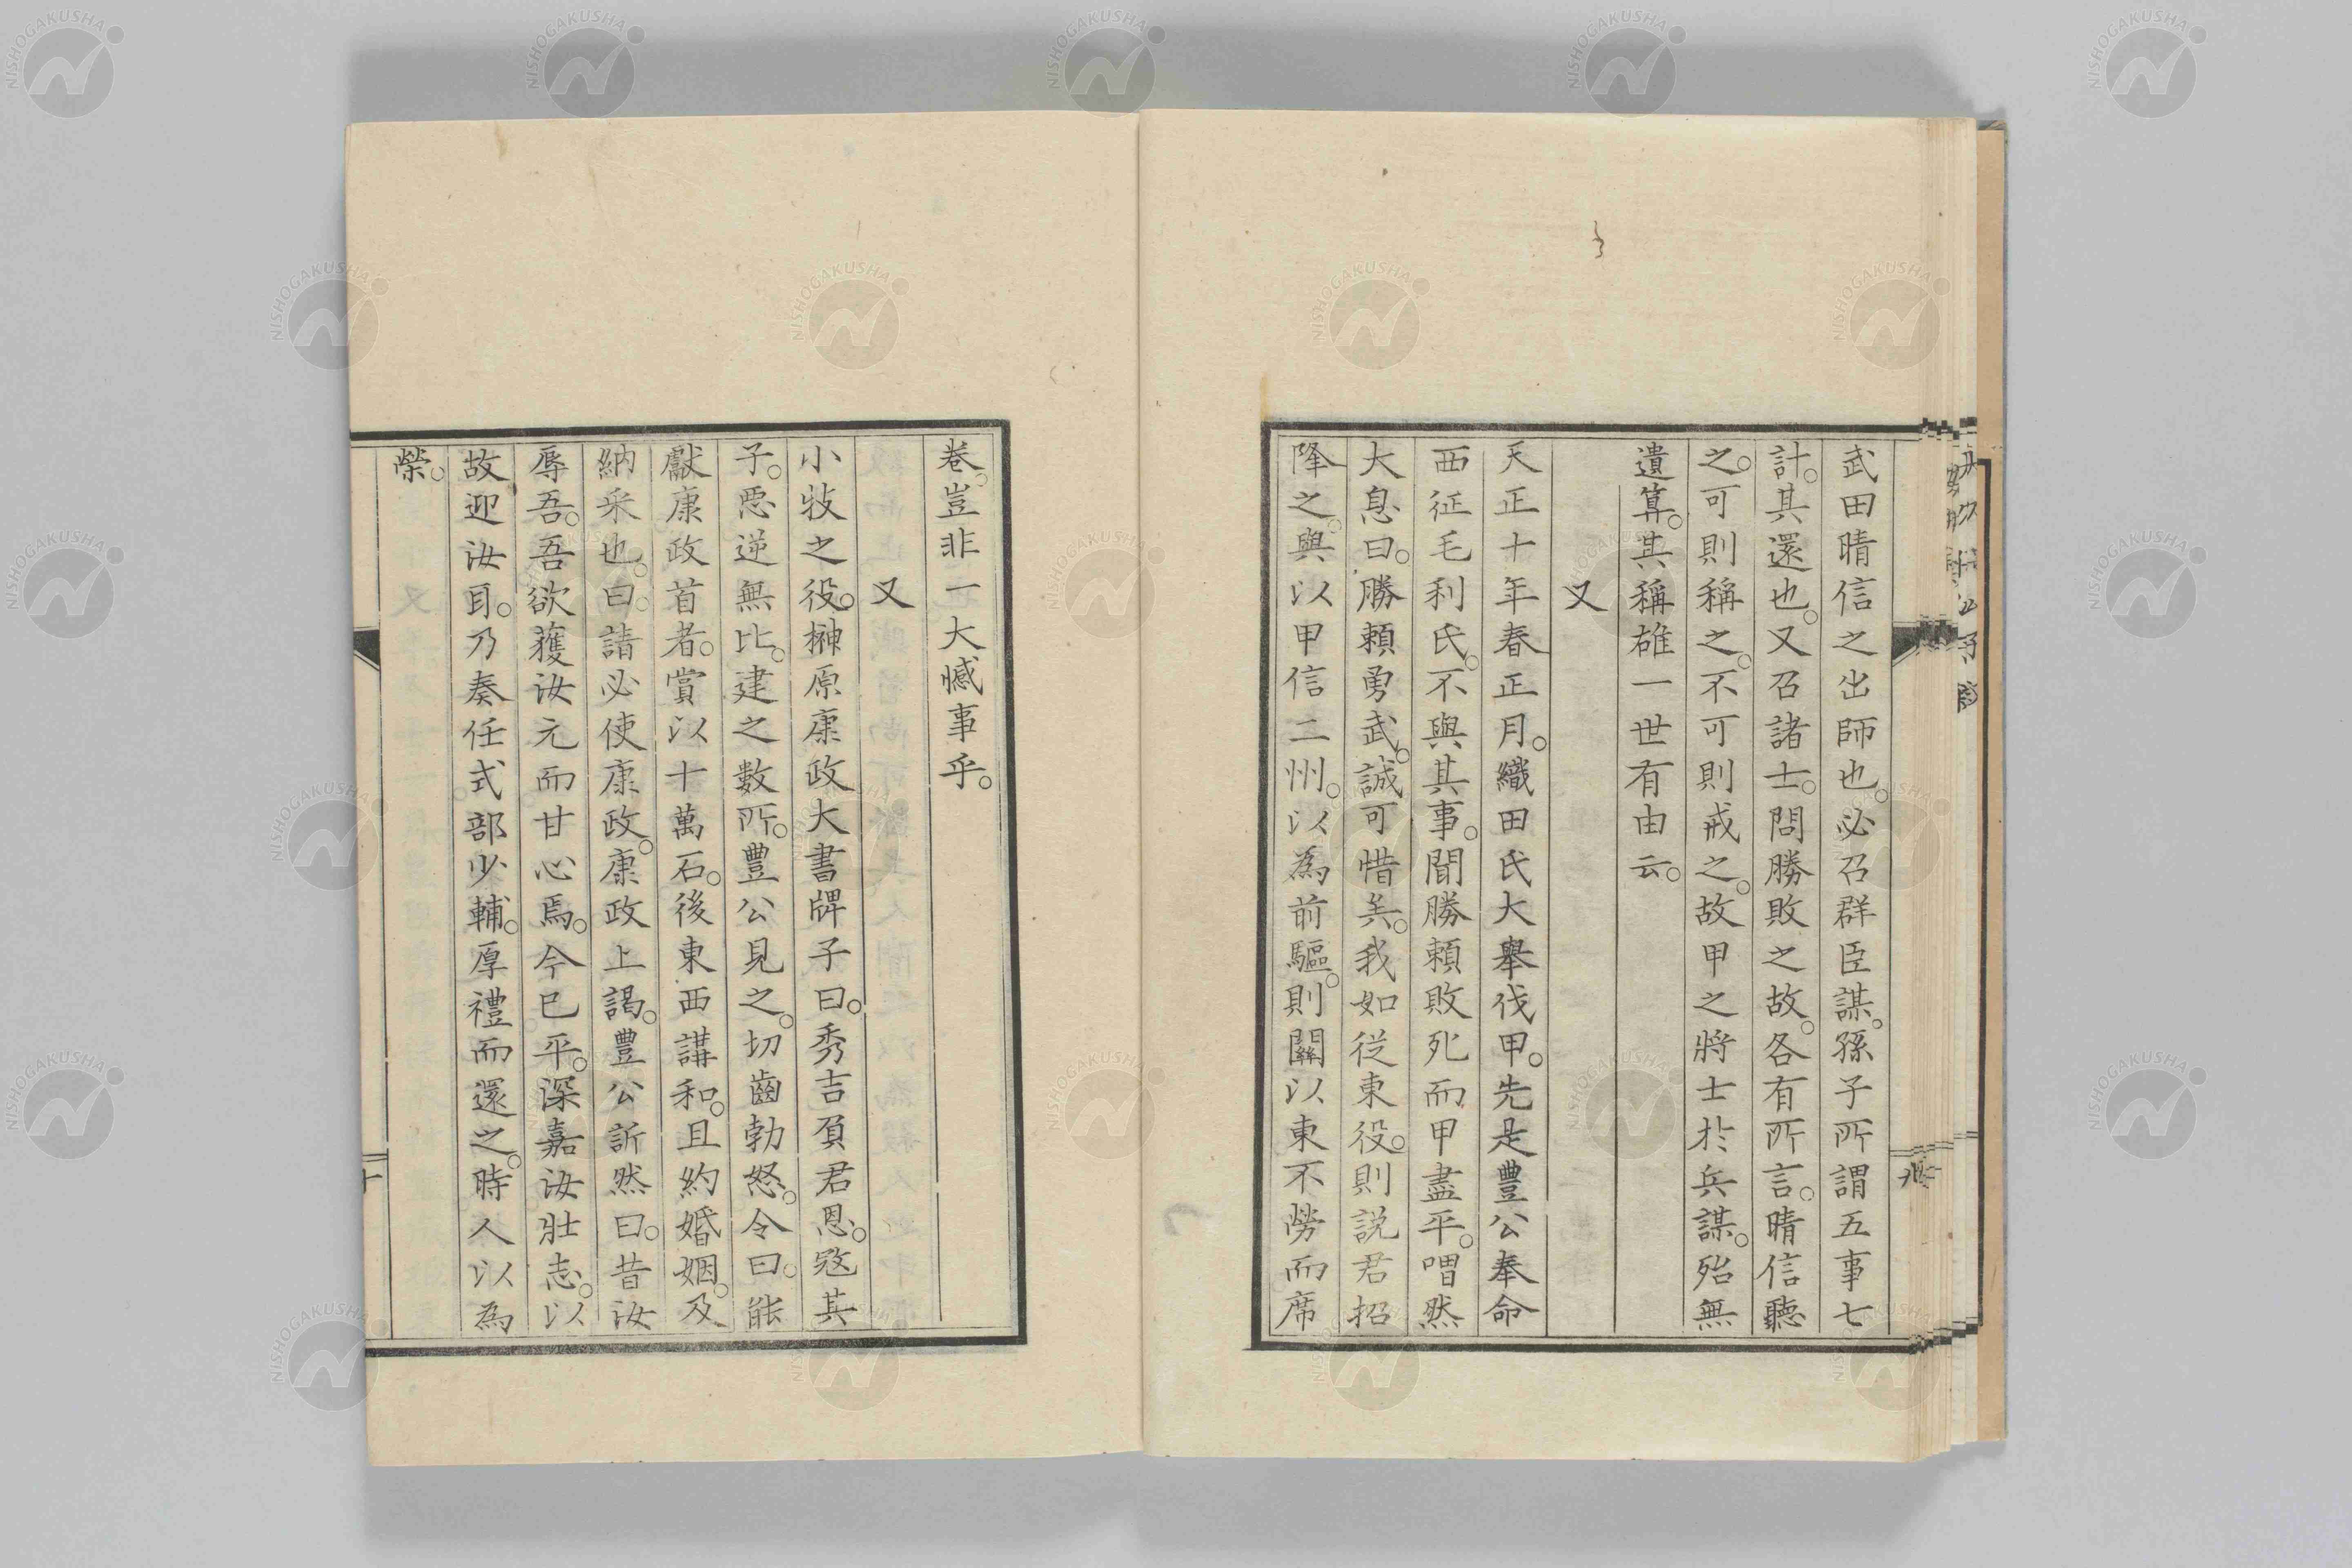 武田晴信之出師也。必召群臣謀。孫子所謂五事七
計。其還也。又召諸士。問勝敗之故。各有所言。晴信聽
之。可則稱之。不可則戒之。故甲之將士於兵謀。殆無
遺算。其稱雄一世有由云。
又
天正十年春正月。織田氏大舉伐甲。先是豐公奉命
西征毛利氏。不與其事。聞勝頼敗死而甲盡平。喟然
大息曰。勝頼勇武。誠可惜矣。我如從東役。則説君招
降之。與以甲信二州。以為前驅。則關以東不勞而席
九
卷。豈非一大憾事乎。
又
小牧之役。榊原康政大書牌子曰。秀吉負君恩。寇其
子。惡逆無比。建之數所。豐公見之。切齒勃怒。令曰。能
獻康政首者。賞以十萬石。後東西講和。且約婚姻。及
納采也。曰。請必使康政。康政上謁。豐公訢然曰。昔汝
辱吾。吾欲獲汝元而甘心焉。今已平。深嘉汝壯志。以
故迎汝耳。乃奏任式部少輔。厚禮而還之。時人以為
榮。
十
NISHOGAKUSHA